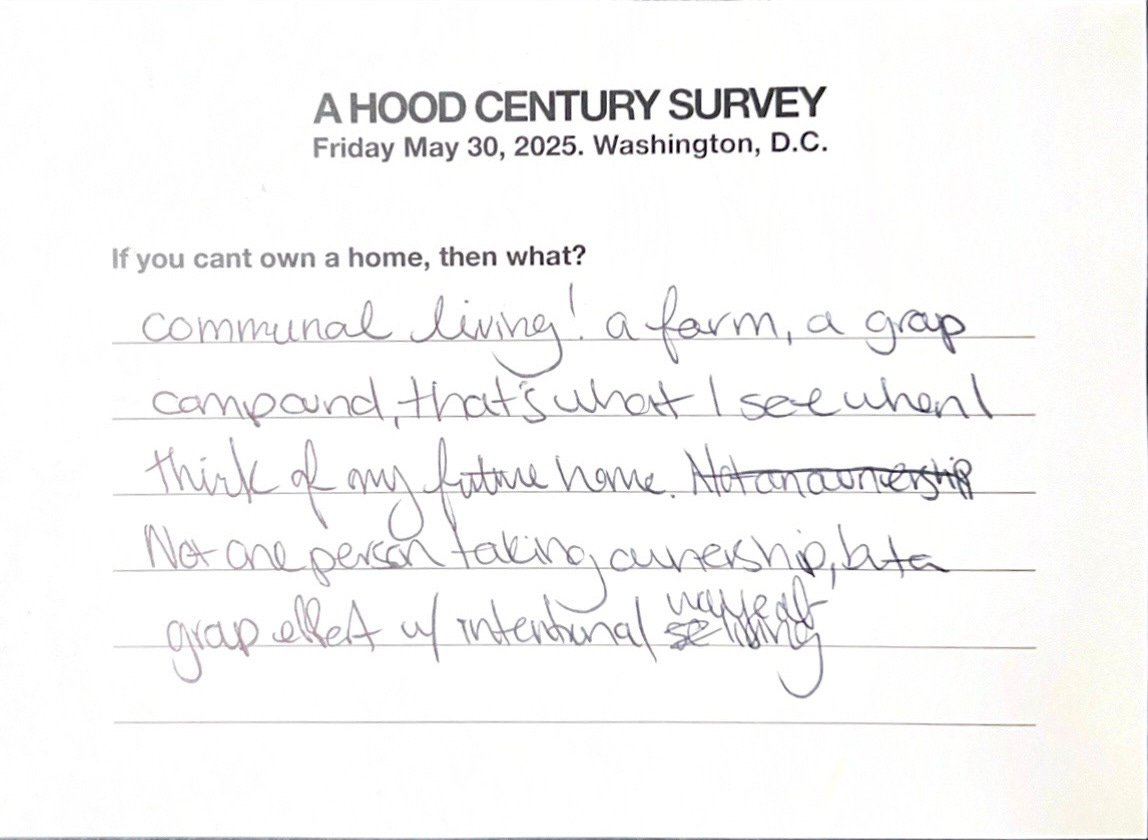 A HOOD CENTURY SURVEY
Friday May 30, 2025. Washington, D.C.
If you cant own a home, then what?
communal living! a farm, a group
compound, that's what I see when I
think of my future home. Not an ownership
Not one person taking ownership, but a
group effort w/ intentional ways of
living